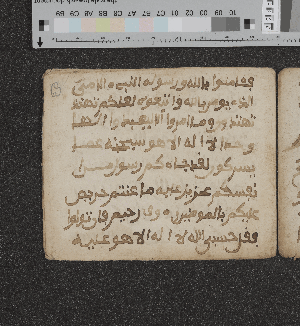 فـامنوا بالله ورسوله النبي الامي
الذي يومن بالله واتبعوه لعلكم تهتد
تهتدون وما امروا الا ليعبدوا الها
وحدا لا اله الا هو سبحنه عما
يشركون لقد جاءكم رسول من
انفسكم عزيز عليه ما عنتم حريص
عليكم بالمومنين رءوف رحيم فان تولوا
فقل حسبي الله لا اله الا هو عليه